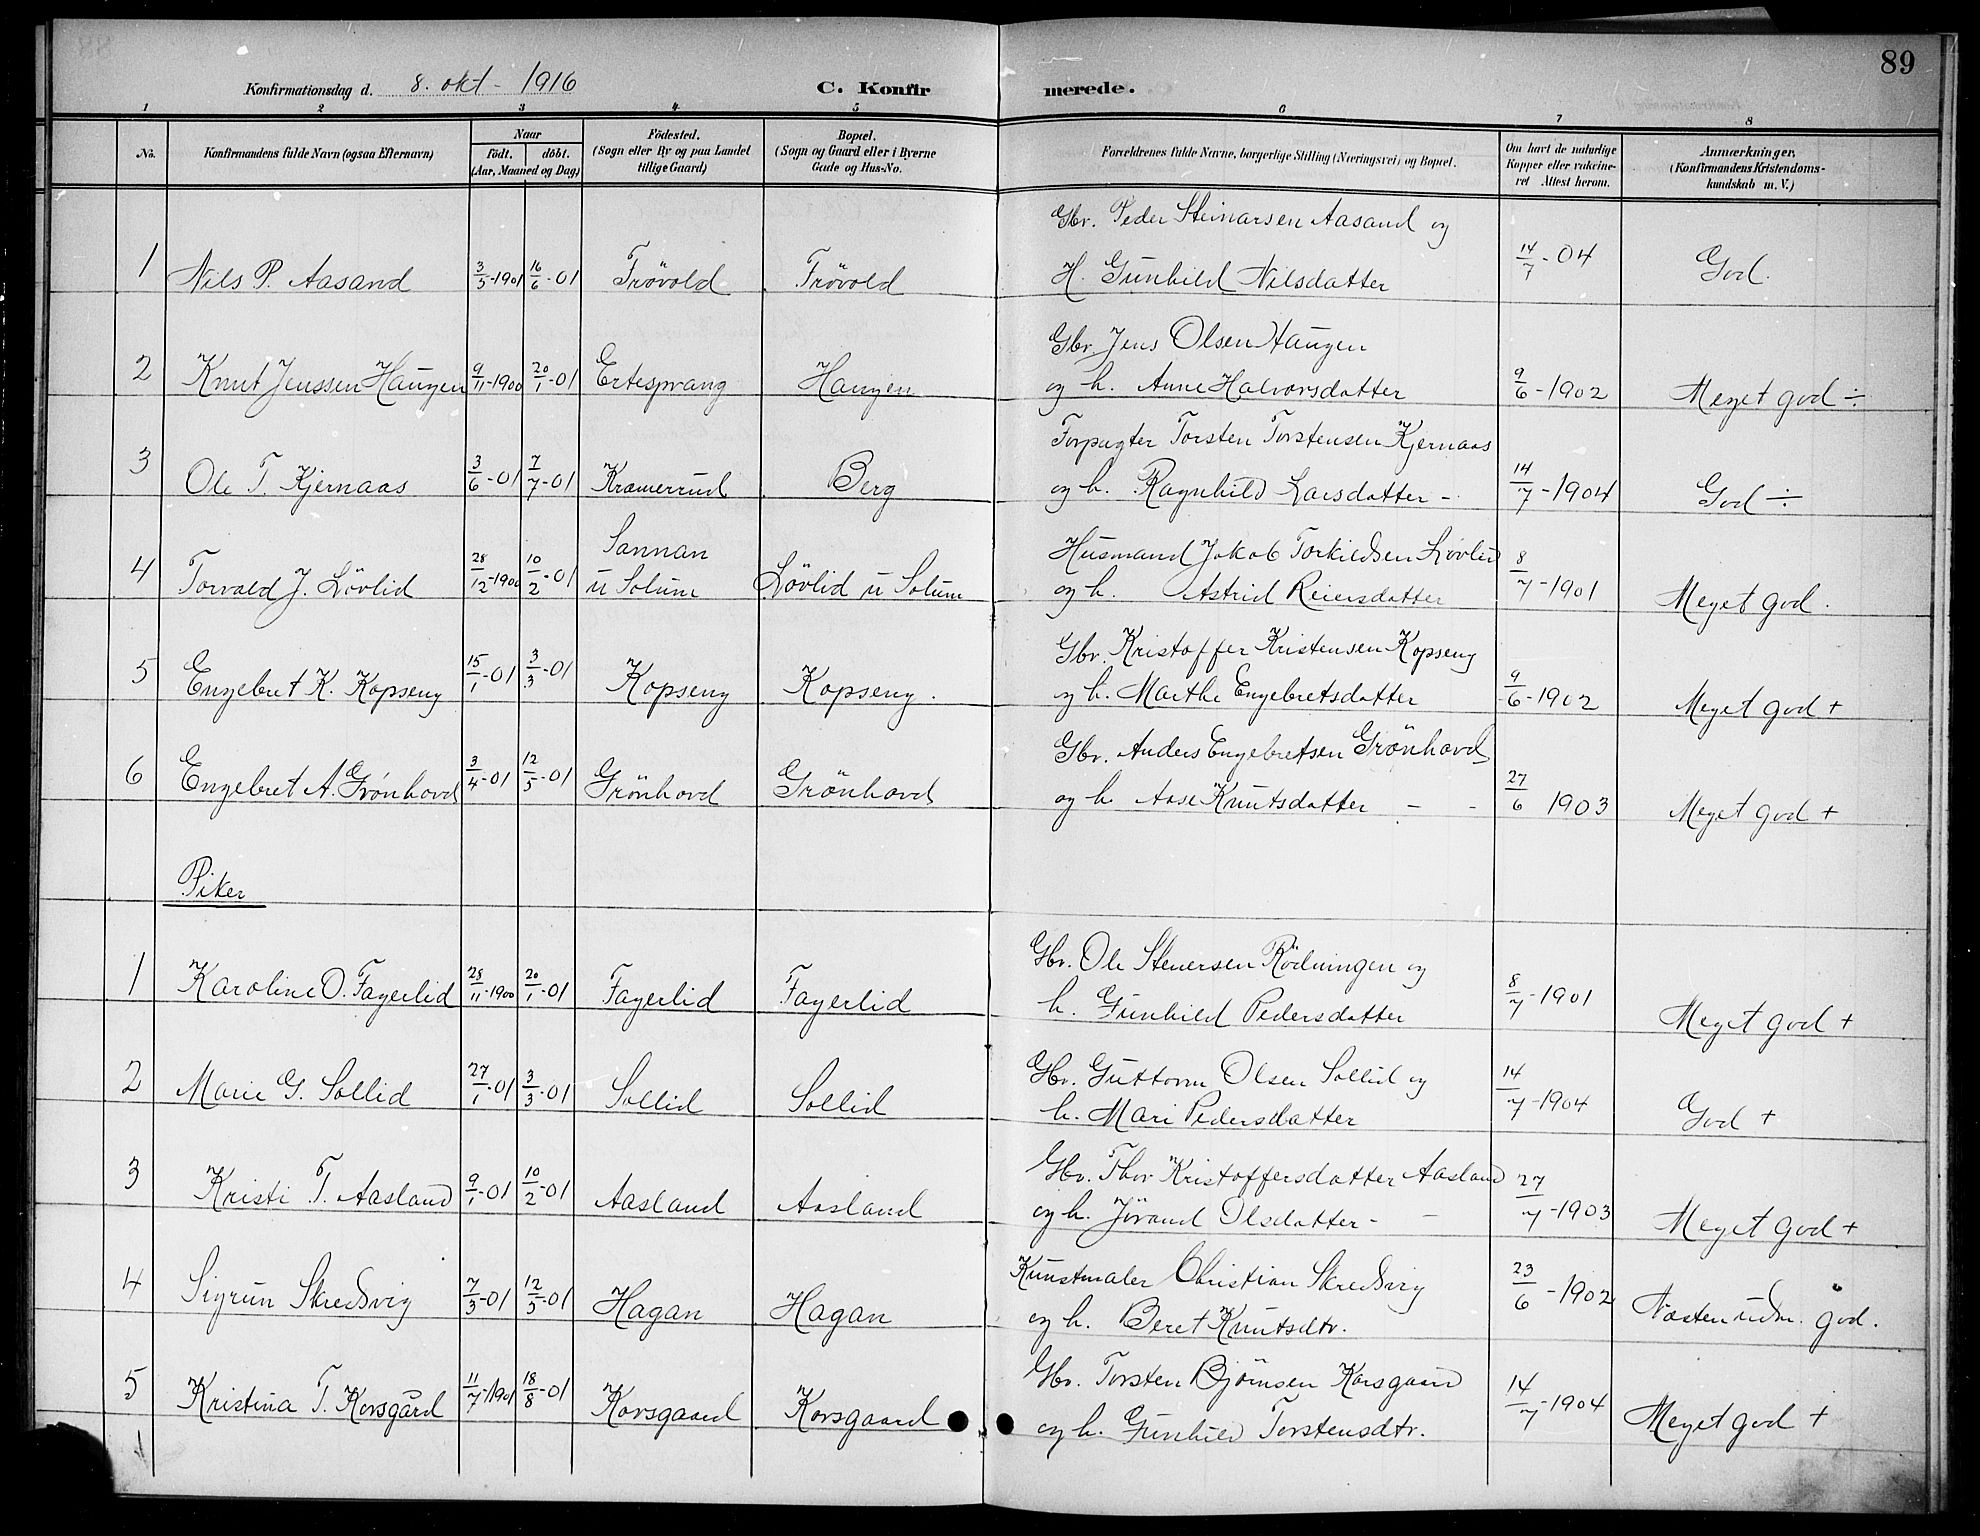 89
Konfirmationsdag d. 8. okt - 1916 C. Konfirmerede.
1 2 3 4 5 6 7 8
No. Konfirmandens fulde Navn (ogsaa Efternavn) Naar födt. döbt. (Aar, Maaned og Dag) Födested. (Sogn eller By og paa Landet tillige Gaard) Bopæl. (Sogn og Gaard eller i Byerne Gade og Hus-No. Forældrenes fulde Navne, borgerlige Stilling (Næringsvei) og Bopæl. Om havt de naturlige Kopper eller vakcineret Attest herom. Anmærkninger, (Konfirmandens Kristendomskundskab m. V.)
Gbr. Peder Steinarsen Aasand og
1 Nils P. Aasand 3/5-1901 16/6-01 Trövold Trövold H. Gunhild Nilsdatter 14/7-04 God.
Gbr. Jens Olsen Haugen
2 Knut Jenssen Haugen 9/11-1900 20/1-01 Ertesprang Haugen og h. Anne Halvorsdatter 9/6-1902 Meget god ÷
Forpagter Torsten Torstensen Kjernaas
3 Ole T. Kjernaas 3/6-01 7/7-01 Kramerrud Berg og h. Ragnhild Larsdatter - 14/7-1904 God ÷
Sannan Husmand Jakob Torkildsen Lövlid
4 Torvald J. Lövlid 28/12-1900 10/2-01 u Solum Lövlid u Solum og h. Astrid Reiersdatter 8/7-1901 Meget god.
Gbr. Kristoffer Kristensen Kopseng
5 Engebret K. Kopseng 15/1-01 3/3-01 Kopseng Kopseng. og h. Marthe Engebretsdatter 9/6-1902 Meget god +
Gbr. Anders Engebretsen Grönhovd
6 Engebret A. Grönhovd 3/4-01 12/5-01 Grönhovd Grönhovd og h. Aase Knutsdatter - - 27/6 1903 Meget god +
Piker
Gbr. Ole Stenersen Rödningen og
1 Karoline O. Fagerlid 28/11-1900 20/1-01 Fagerlid Fagerlid h. Gunhild Pedersdatter 8/7-1901 Meget god +
Gbr. Guttorm Olsen Sollid og
2 Marie G. Sollid 27/1-01 3/3-01 Sollid Sollid h. Mari Pedersdatter 14/7-1904 God +
Gbr. Thor Kristoffersdatter Aasland
3 Kristi T. Aasland 9/1-01 10/2-01 Aasland Aasland og h. Jörand Olsdatter - - 27/7-1903 Meget god +
Kunstmaler Christian Skredsvig
4 Sigrun Skredsvig 7/3-01 12/5-01 Hagan Hagan og h. Beret Knutsdtr. 23/6-1902 Næsten udm. god.
Gbr. Torsten Björnsen Korsgaard
5 Kristina T. Korsgård 11/7-1901 18/8-01 Korsgaard Korsgaard og h. Gunhild Torstensdtr. 14/7-1904 Meget god +